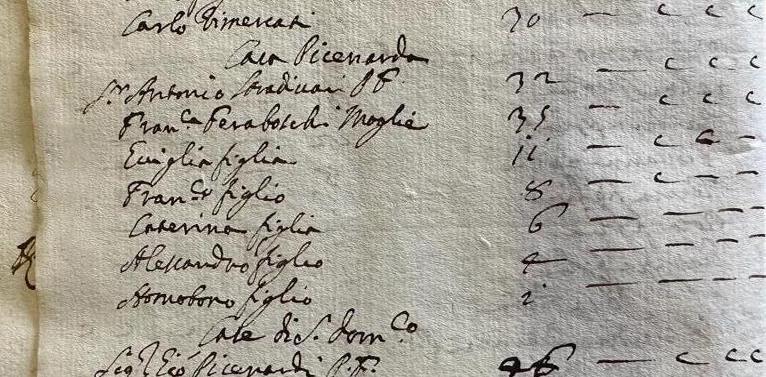 Carlo Vimercati 30 — c c c
Casa Picenarda
Sr Antonio Stradivari P.F. 32 — c c c
Franca Feraboschi Moglie 35 — c c c
figlia 11 — c c -
Franco figlio 8 — c — —
Caterina figlia 6 — — — —
Alessandro figlio 4 — — — —
Homobono figlio 2 — — — —
Case di S. Domco
Picenardi P.F. 46 — c c c